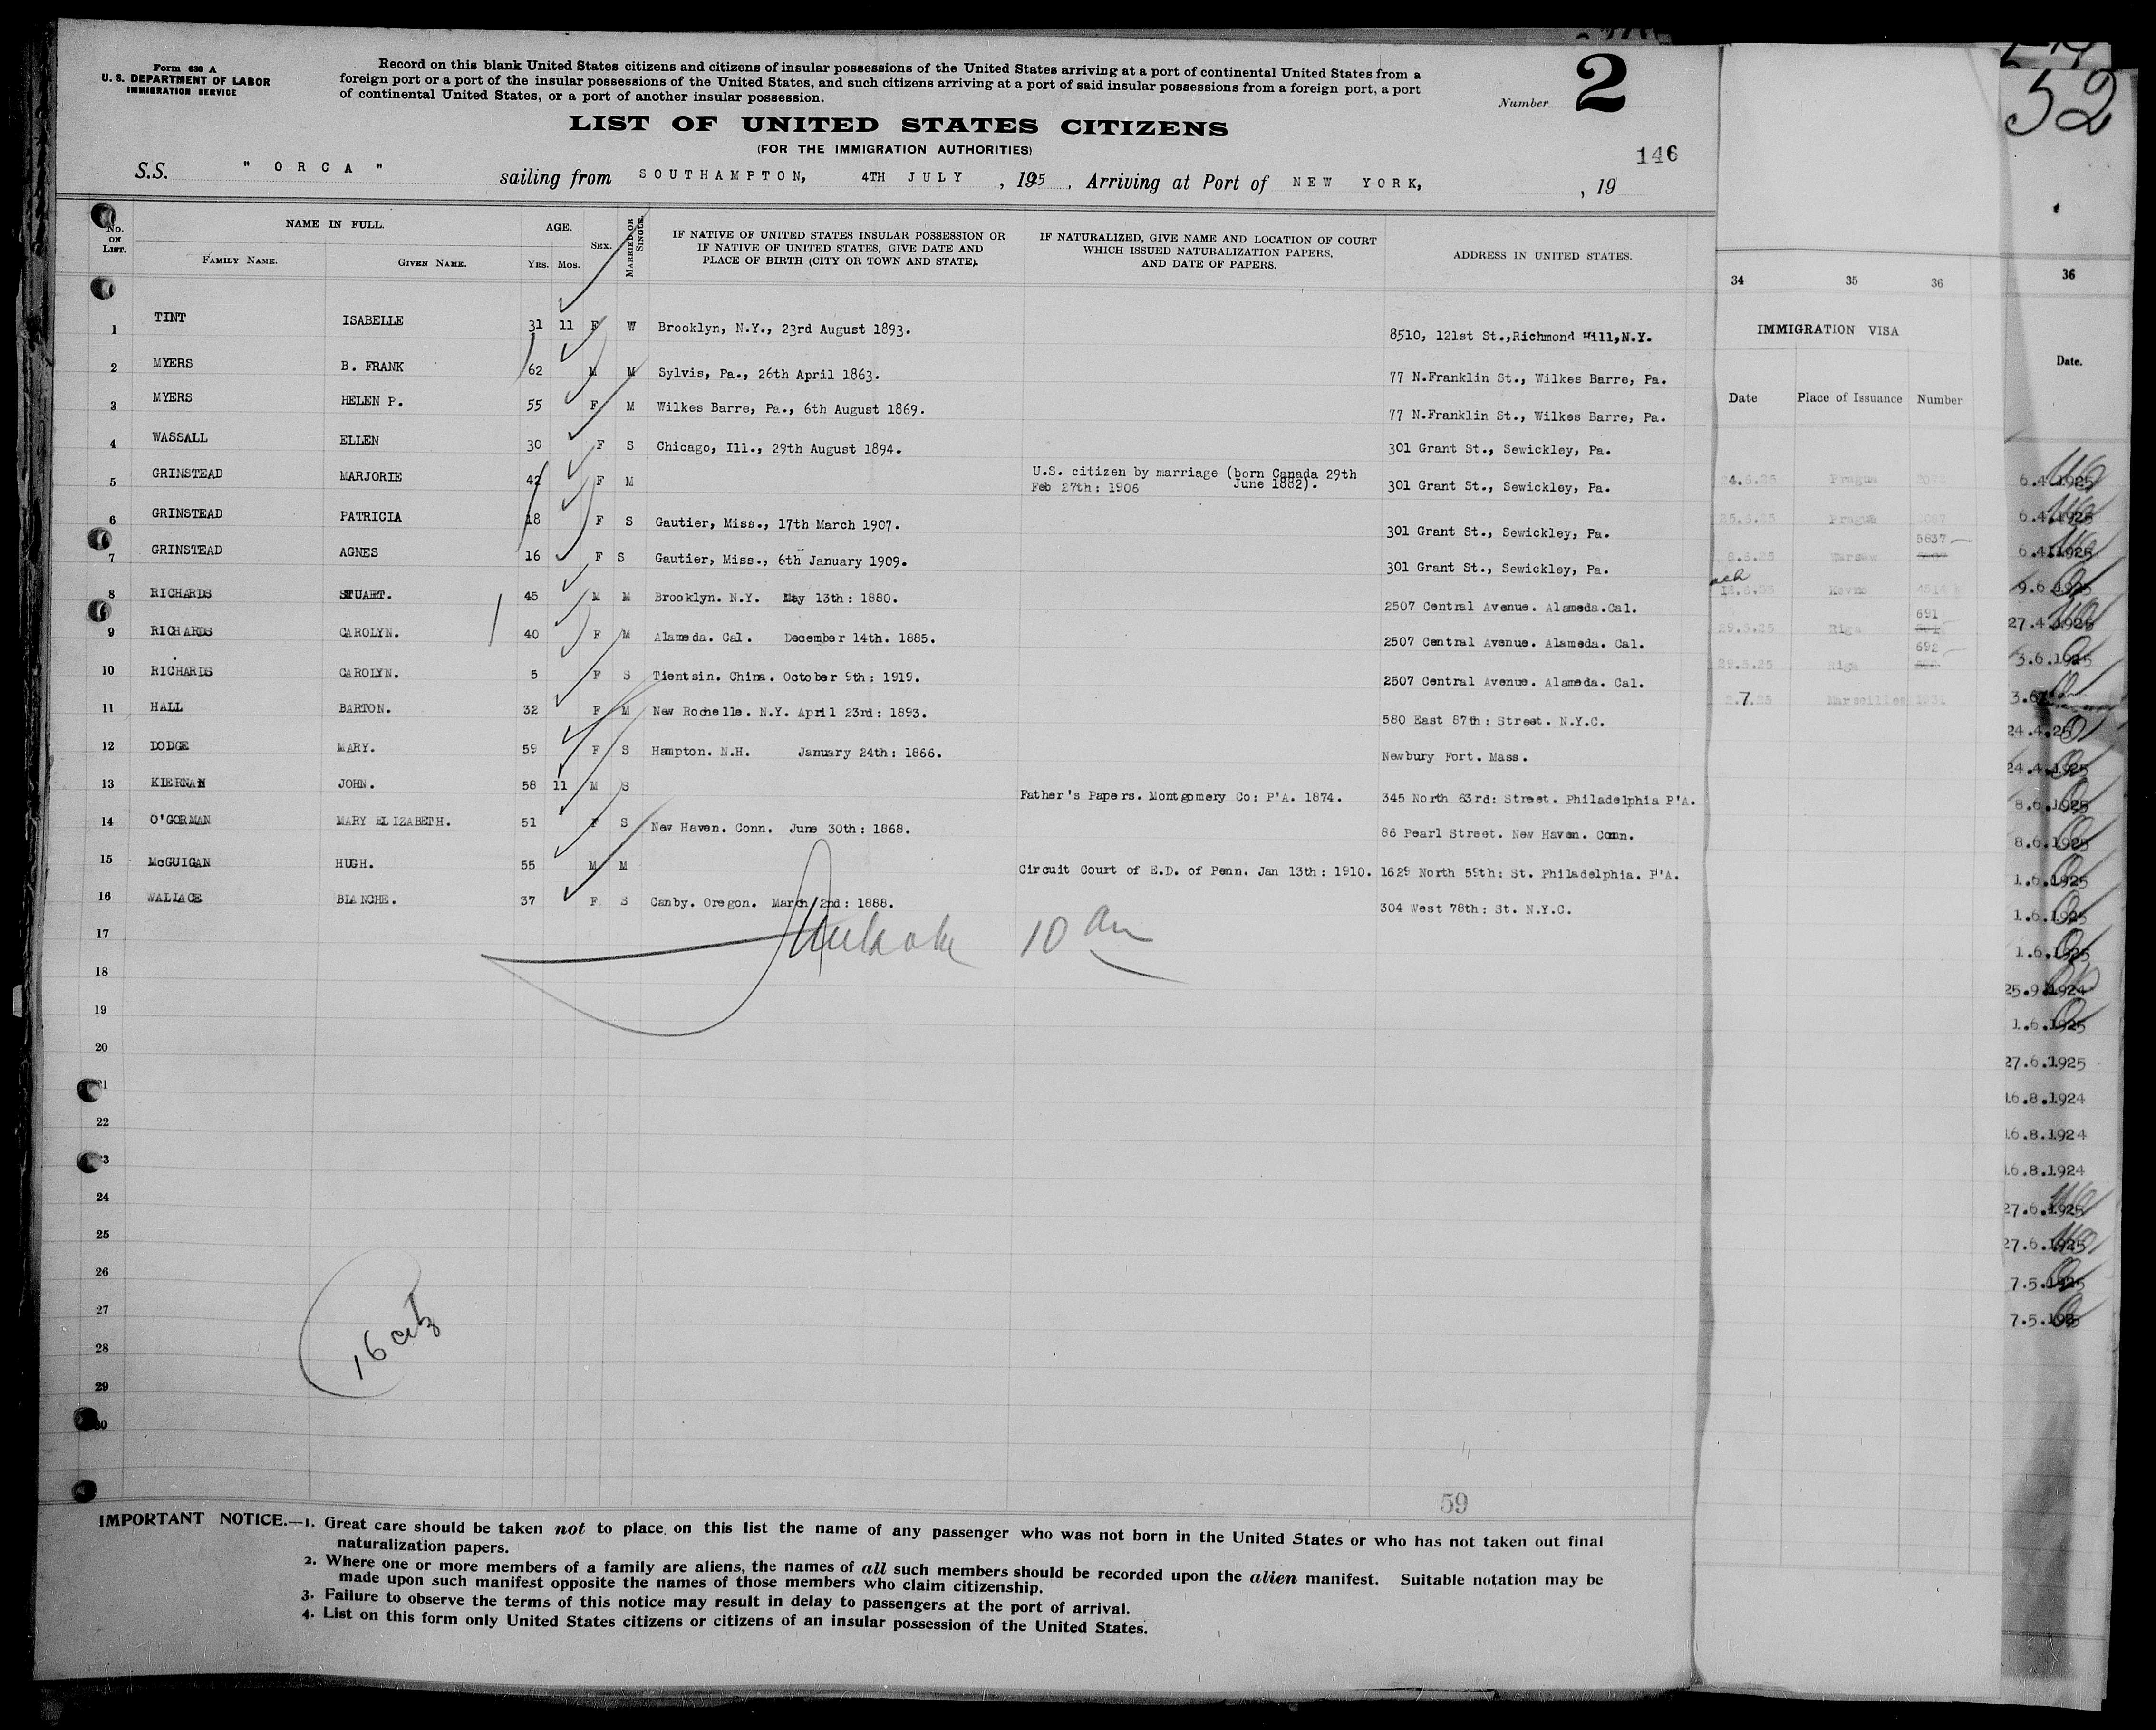 Form 630 A
U. S. DEPARTMENT OF LABOR
IMMIGRATION SERVICE
Record on this blank United States citizens and citizens of insular possessions of the United States arriving at a port of continental United States from a
foreign port or a port of the insular possessions of the United States, and such citizens arriving at a port of said insular possessions from a foreign port, a port
of continental United States, or a port of another insular possession.
Number 2
52
LIST OF UNITED STATES CITIZENS
(FOR THE IMMIGRATION AUTHORITIES)
146
S.S. " ORCA " sailing from SOUTHAMPTON, 4TH JULY , 1925 , Arriving at Port of NEW YORK, , 19
No. ON LIST.
NAME IN FULL.
FAMILY NAME. GIVEN NAME.
AGE.
Yrs. Mos.
SEX.
MARRIED OR SINGLE.
IF NATIVE OF UNITED STATES INSULAR POSSESSION OR
IF NATIVE OF UNITED STATES, GIVE DATE AND
PLACE OF BIRTH (CITY OR TOWN AND STATE).
IF NATURALIZED, GIVE NAME AND LOCATION OF COURT
WHICH ISSUED NATURALIZATION PAPERS,
AND DATE OF PAPERS.
ADDRESS IN UNITED STATES.
1 TINT ISABELLE 31 11 F W Brooklyn, N.Y., 23rd August 1893. 8510, 121st St.,Richmond Hill,N.Y.
2 MYERS B. FRANK 62 M M Sylvis, Pa., 26th April 1863. 77 N.Franklin St., Wilkes Barre, Pa.
3 MYERS HELEN P. 55 F M Wilkes Barre, Pa., 6th August 1869. 77 N.Franklin St., Wilkes Barre, Pa.
4 WASSALL ELLEN 30 F S Chicago, Ill., 29th August 1894. 301 Grant St., Sewickley, Pa.
5 GRINSTEAD MARJORIE 42 F M U.S. citizen by marriage (born Canada 29th June 1882). Feb 27th: 1906 301 Grant St., Sewickley, Pa.
6 GRINSTEAD PATRICIA 18 F S Gautier, Miss., 17th March 1907. 301 Grant St., Sewickley, Pa.
7 GRINSTEAD AGNES 16 F S Gautier, Miss., 6th January 1909. 301 Grant St., Sewickley, Pa.
8 RICHARDS STUART. 45 M M Brooklyn. N.Y. May 13th: 1880. 2507 Central Avenue. Alameda.Cal.
9 RICHARDS CAROLYN. 40 F M Alameda. Cal. December 14th. 1885. 2507 Central Avenue. Alameda. Cal.
10 RICHARDS CAROLYN. 5 F S Tientsin. China. October 9th: 1919. 2507 Central Avenue. Alameda. Cal.
11 HALL BARTON. 32 F M New Rochelle. N.Y. April 23rd: 1893. 580 East 87th: Street. N.Y.C.
12 DODGE MARY. 59 F S Hampton. N.H. January 24th: 1866. Newbury Fort. Mass.
13 KIERNAN JOHN. 58 11 M S Father's Papers. Montgomery Co: P'A. 1874. 345 North 63rd: Street. Philadelphia P'A.
14 O'GORMAN MARY ELIZABETH. 51 F S New Haven. Conn. June 30th: 1868. 86 Pearl Street. New Haven. Conn.
15 McGUIGAN HUGH. 55 M M Circuit Court of E.D. of Penn. Jan 13th: 1910. 1629 North 59th: St. Philadelphia. P'A.
16 WALLACE BLANCHE. 37 F S Canby. Oregon. March 2nd: 1888. 304 West 78th: St. N.Y.C.
17
10 am
18
19
20
21
22
23
24
25
26
27
28
29
30
16 citz
59
IMPORTANT NOTICE.—1. Great care should be taken not to place on this list the name of any passenger who was not born in the United States or who has not taken out final
naturalization papers.
2. Where one or more members of a family are aliens, the names of all such members should be recorded upon the alien manifest. Suitable notation may be
made upon such manifest opposite the names of those members who claim citizenship.
3. Failure to observe the terms of this notice may result in delay to passengers at the port of arrival.
4. List on this form only United States citizens or citizens of an insular possession of the United States.
34 35 36
IMMIGRATION VISA
Date Place of Issuance Number
24.6.25 Prague
25.6.25 Prague
5637
8.6.25 Warsaw
Kovno
691
29.5.25 Riga
692
29.5.25 Riga
2.7.25 Marseilles 1931
36
Date.
6.4.1925
6.4.1925
6.4.1925
9.6.1925
27.4.1925
3.6.1925
24.4.25
24.4.1925
8.6.1925
8.6.1925
1.6.1925
1.6.1925
1.6.1925
25.9.1924
1.6.1925
27.6.1925
16.8.1924
16.8.1924
16.8.1924
27.6.1925
27.6.1925
7.5.1925
7.5.1925